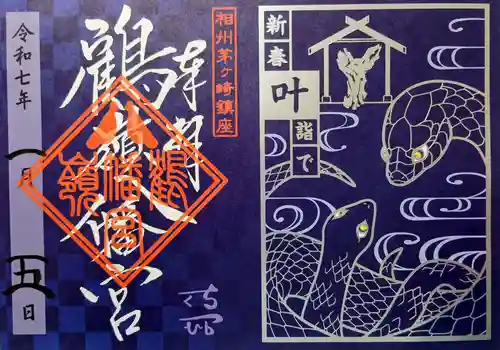 相州茅ヶ崎鎮座
奉拝
鶴嶺八幡宮
鶴
八幡宮
嶺
令和七年
一月
五日
新春
叶
詣で